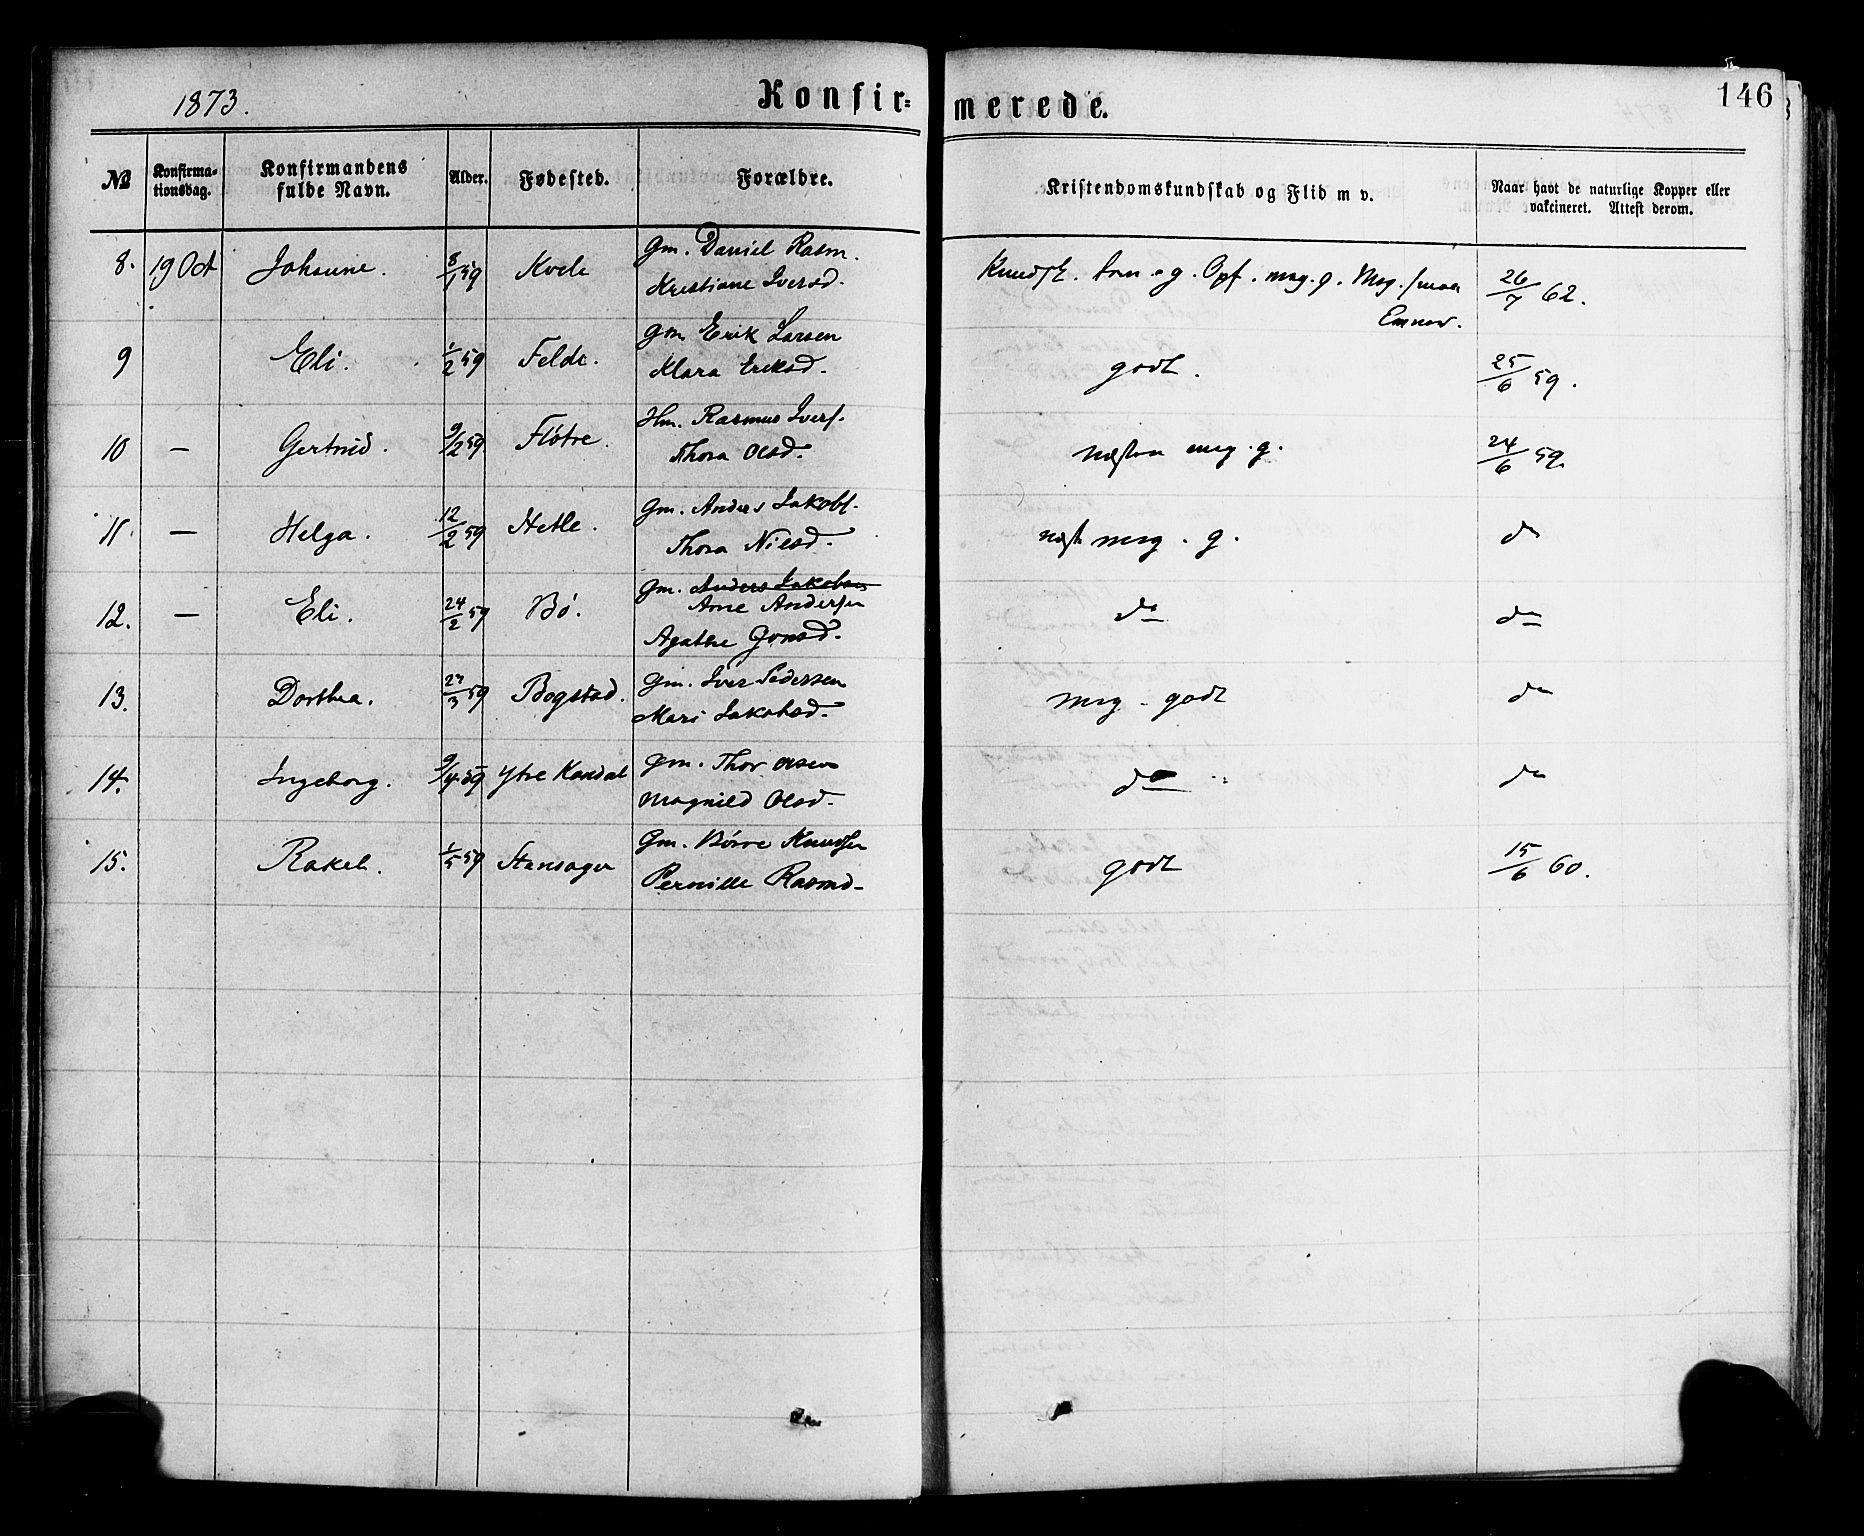 1873.
Konfir=
merede.
146
№
Konfirma-
tionsdag.
Konfirmandens
fulde Navn.
Alder.
Fødested.
Forældre.
Kristendomskundskab og Flid m v.
Naar havt de naturlige Kopper eller
vakcineret. Attest derom.
8. 19 Oct Johanne. 8/1 59 Kvele Gm. Daniel Rasm.
Kristiane Iversd.
Kundsk. tem. g. Opf. meg. g. Meg.
26/7 62.
9 Eli. 1/2 59 Felde. Gm Erik Larsen
Klara Eriksd.
godt. 25/6 59.
10 – Gertrud. 9/2 59 Flötre. Hm. Rasmus Ivers.
Thora Olsd.
næsten meg. g. 24/6 59.
11. – Helga. 12/2 59 Hetle. Gm. Anders Jakobs.
Thora Nilsd.
næst meg. g. do
12. – Eli. 24/2 59 Bö. Gm. Anders Jakobsen
Arne Andersen
Agathe Jonsd.
do do
13. Dorthea. 27/3 59 Bogstad. Gm. Iver Pedersen
Mari Jakobsd.
meg. godt do
14. Ingeborg. 9/4 59 Ytre Kandal Gm. Thor Olsen
Magnild Olsd.
do do
15. Rakel. 1/5 59 Stensager Gm. Börre Knudsen
Pernille Rasmd.
godt 15/6 60.